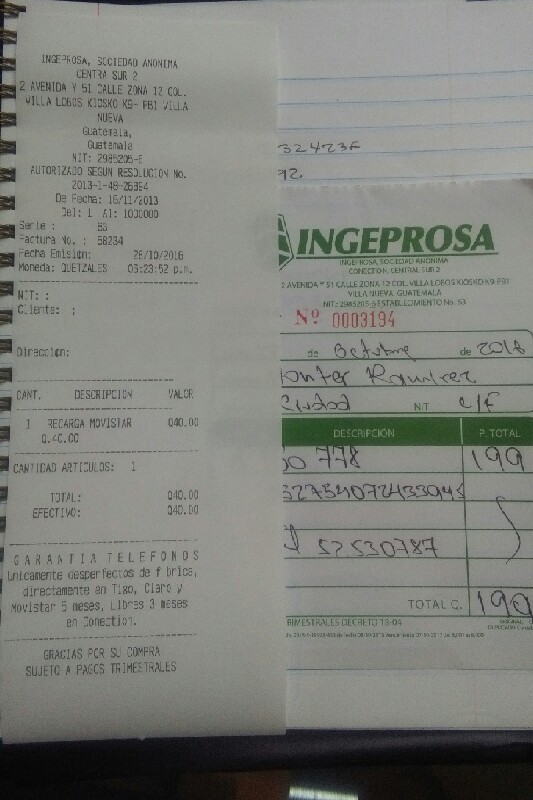 INGEPROSA, SOCIEDAD ANONIMA
CENTRA SUR 2
2 AVENIDA Y 51 CALLE ZONA 12 COL.
VILLA LOBOS KIOSKO K9- PB1 VILLA
NUEVA
Guatemala,
Guatemala
NIT: 2985205-6
AUTORIZADO SEGUN RESOLUCION No.
2013-1-48-26894
De Fecha: 16/11/2013
Del: 1 Al: 1000000
Serie : B3
Factura No. : 58234
Fecha Emision: 28/10/2016
Moneda: QUETZALES 06:23:52 p.m.
NIT: :
Cliente: :
Dirección:
CANT. DESCRIPCION VALOR
1 RECARGA MOVISTAR Q40.00
Q.40.00
CANTIDAD ARTICULOS: 1
TOTAL: Q40.00
EFECTIVO: Q40.00
GARANTIA TELEFONOS
Unicamente desperfectos de f brica,
directamente en Tigo, Claro y
Movistar 6 meses, Libres 3 meses
en Conection.
GRACIAS POR SU COMPRA
SUJETO A PAGOS TRIMESTRALES
32423F
92.
INGEPROSA
INGEPROSA, SOCIEDAD ANONIMA
CONECTION, CENTRAL SUR 2
2 AVENIDA Y 51 CALLE ZONA 12 COL. VILLA LOBOS KIOSKO K9 PB1
VILLA NUEVA, GUATEMALA
NIT: 2985205-6 ESTABLECIMIENTO No. 53
Nº 0003194
de Octubre de 2016
Ramirez
Ciudad NIT C/F
DESCRIPCIÓN P. TOTAL
778 199
52530787
TOTAL Q. 199
TRIMESTRALES DECRETO 18-04